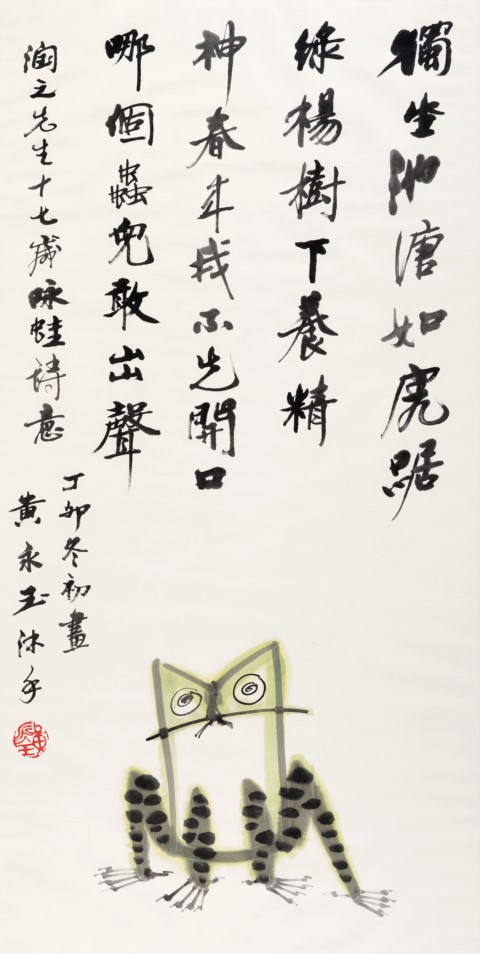 獨坐池塘如虎踞
綠楊樹下養精
神春来我不先開口
哪個蟲兒敢出聲
潤之先生十七歲咏蛙詩意
丁卯冬初畫
黃永玉沐手